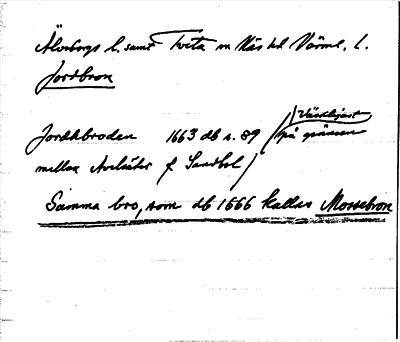 Älvsborgs l. samt Tveta m Näs hd Värml. l.
Jordbron
Jordhbroden 1663 db s. 89 (Värdskjart
på gränsen
mellan Avelsäter f Sandbol)
Samma bro, som db 1666 kallas Mossebron